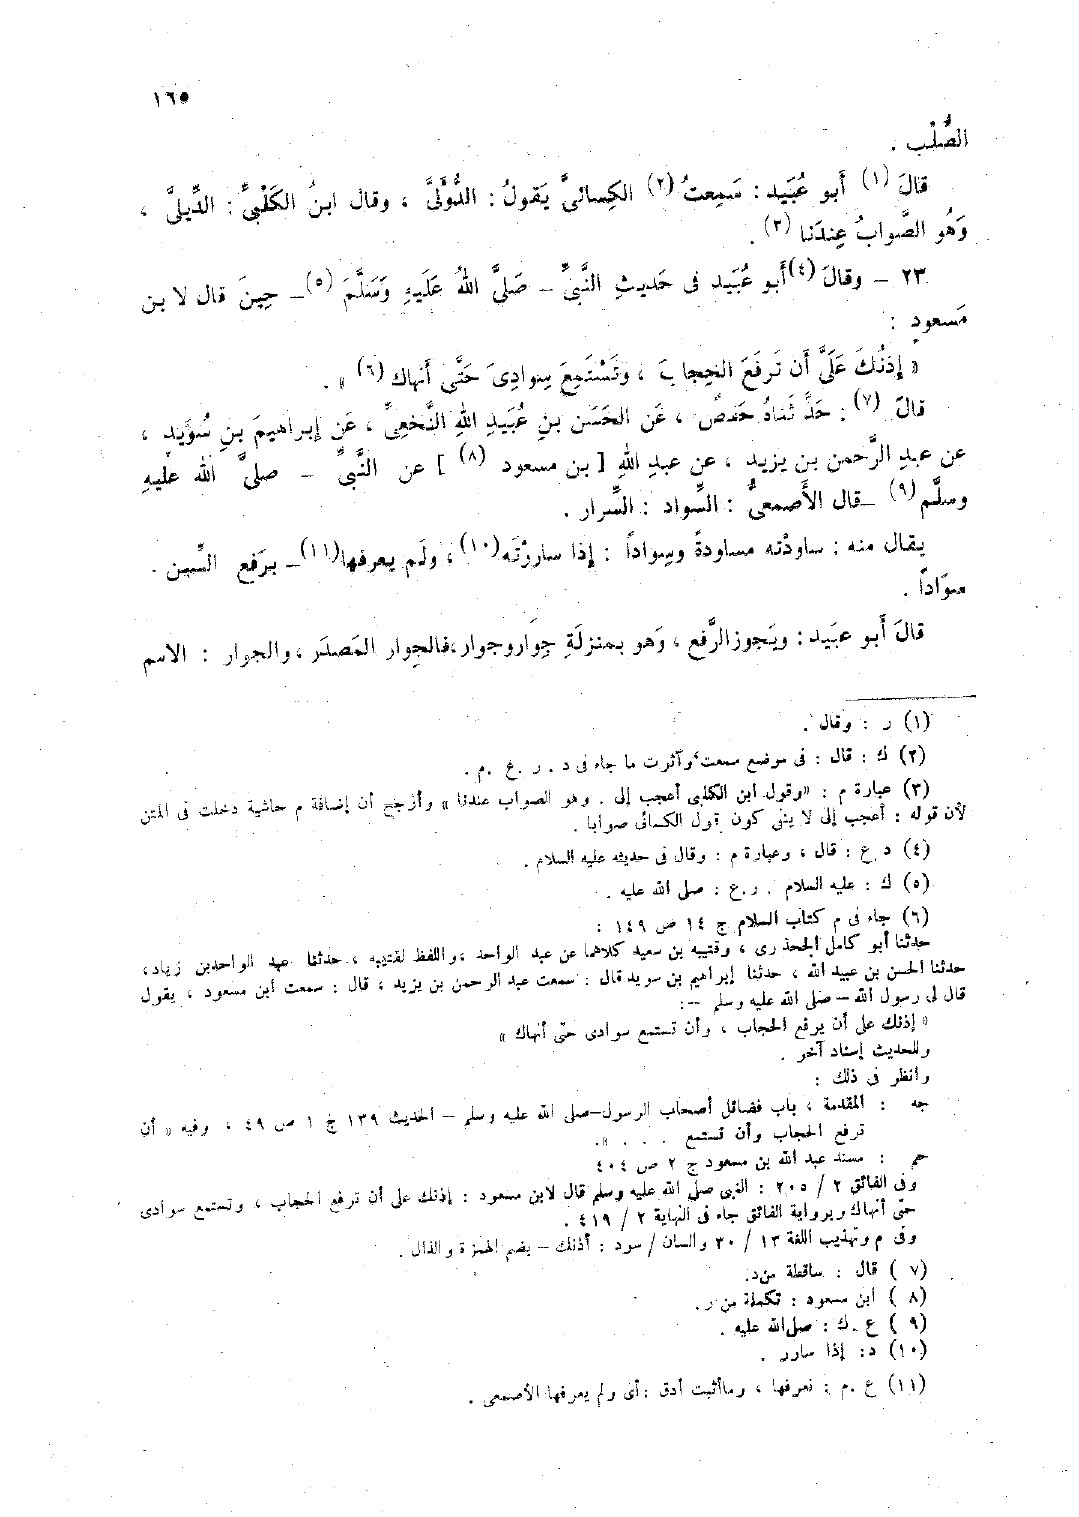 ١٦٥
الصُّلْب .
قالَ (١) أَبو عُبَيد : سَمِعتُ (٢) الكِسائىَّ يَقولُ : الدُّوَلىَّ ، وقال ابنُ الكَلْبىِّ : الدِّيلىَّ ،
وَهُو الصَّوابُ عِندَنا (٣) .
٢٣ – وقالَ (٤) أَبو عُبَيد فى حَديثِ النَّبىِّ – صَلىَّ اللهُ عَلَيهِ وَسَلَّمَ (٥) – حِينَ قال لا بن
مَسعودٍ :
« إِذنُكَ عَلَىَّ أَن تَرفَعَ الحِجابَ ، وتَسْتَمِعَ سِوادِىَ حَتَّى أَنهاك (٦) » .
قالَ (٧) : حَدَّ ثَناهُ حَفصٌ ، عَن الحَسَن بنِ عُبَيدِ اللهِ النَّخعِىِّ ، عَن إبراهيمَ بنِ سُوَيدٍ ،
عن عبدِ الرَّحمن بن يزيد ، عن عبدِ اللهِ [ بن مسعود (٨) ] عن النَّبىِّ – صلىَّ الله عليهِ
وسلَّم (٩) – قال الأَصمعىُّ : السِّواد : السِّرار .
يقال منه : ساودْته مساودةً وسِواداً : إذا ساررْتَه (١٠) ، ولَم يعرفها (١١) – برَفع السِّين .
سُوَاداً .
قالَ أَبو عبَيد : ويَجوز الرَّفع ، وَهو بمنزلَةِ جِوَار وجوار ، فالجِوار المَصدَر ، والجوار : الاسم
(١) ر : وقال .
(٢) ك : قال : فى موضع سمعت وآثرت ما جاء فى د . ر . ع . م .
(٣) عبارة م : «وقول ابن الكلبى أعجب إلى . وهو الصواب عندنا» وأرجح أن إضافة م حاشية دخلت فى المتن
لأن قوله : أعجب إلى لا ينفى كون قول الكسائى صوابا .
(٤) د . ع : قال ، وعبارة م : وقال فى حديثه عليه السلام .
(٥) ك : عليه السلام . ر . ع : صلى الله عليه .
(٦) جاء فى م كتاب السلام ج ١٤ ص ١٤٩ :
حدثنا أبو كامل الجحدرى ، وقتيبه بن سعيد كلاهما عن عبد الواحد ، واللفظ لقتيبه ، حدثنا عبد الواحد بن زياد ،
حدثنا الحسن بن عبيد الله ، حدثنا إبراهيم بن سويد قال : سمعت عبد الرحمن بن يزيد ، قال : سمعت ابن مسعود ، يقول
قال لى رسول الله – صلى الله عليه وسلم – :
« إذنك على أن يرفع الحجاب ، وأن تستمع سوادى حتى أنهاك »
وللحديث إسناد آخر .
وانظر فى ذلك :
جه : المقدمة ، باب فضائل أصحاب الرسول – صلى الله عليه وسلم – الحديث ١٣٩ ج ١ ص ٤٩ ، وفيه « أن
ترفع الحجاب وأن تستمع . . . » .
حم : مسند عبد الله بن مسعود ج ٢ ص ٤٠٤
وفى الفائق ٢ / ٢٠٥ : النبى صلى الله عليه وسلم قال لابن مسعود : إذنك على أن ترفع الحجاب ، وتستمع سوادى
حتى أنهاك وبرواية الفائق جاء فى النهاية ٢ / ٤١٩ .
وفى م وتهذيب اللغة ١٣ / ٣٠ واللسان / سود : أذنك – بضم الهمزة والذال .
(٧) قال : ساقطة من د .
(٨) ابن مسعود : تكملة من ر .
(٩) ع . ك : صلى الله عليه .
(١٠) د : إذا سارر .
(١١) ع . م : نعرفها ، وما أثبت أدق : أى ولم يعرفها الأصمعى .